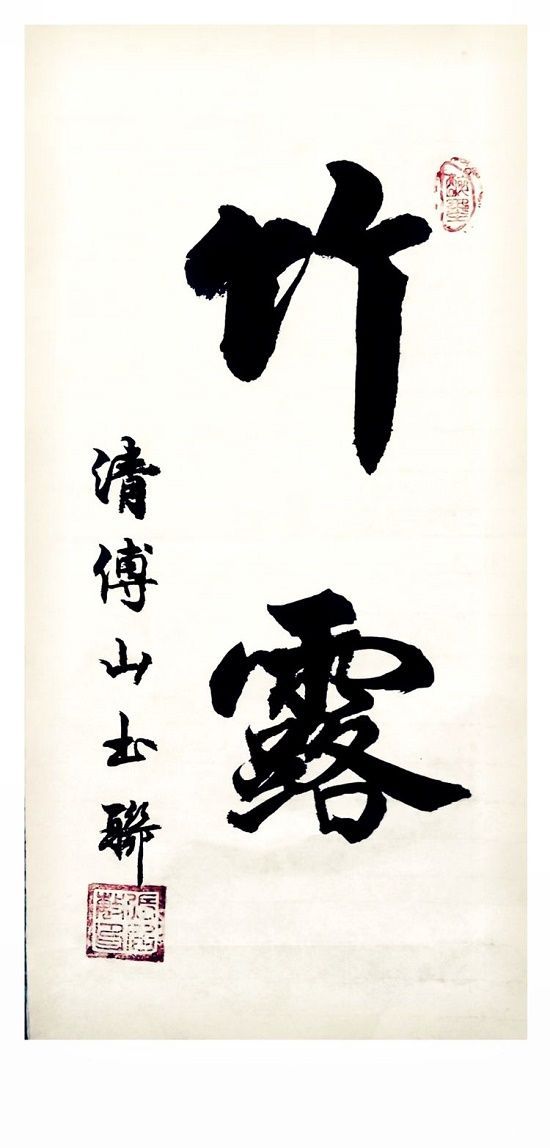 竹露
清傅山书聯